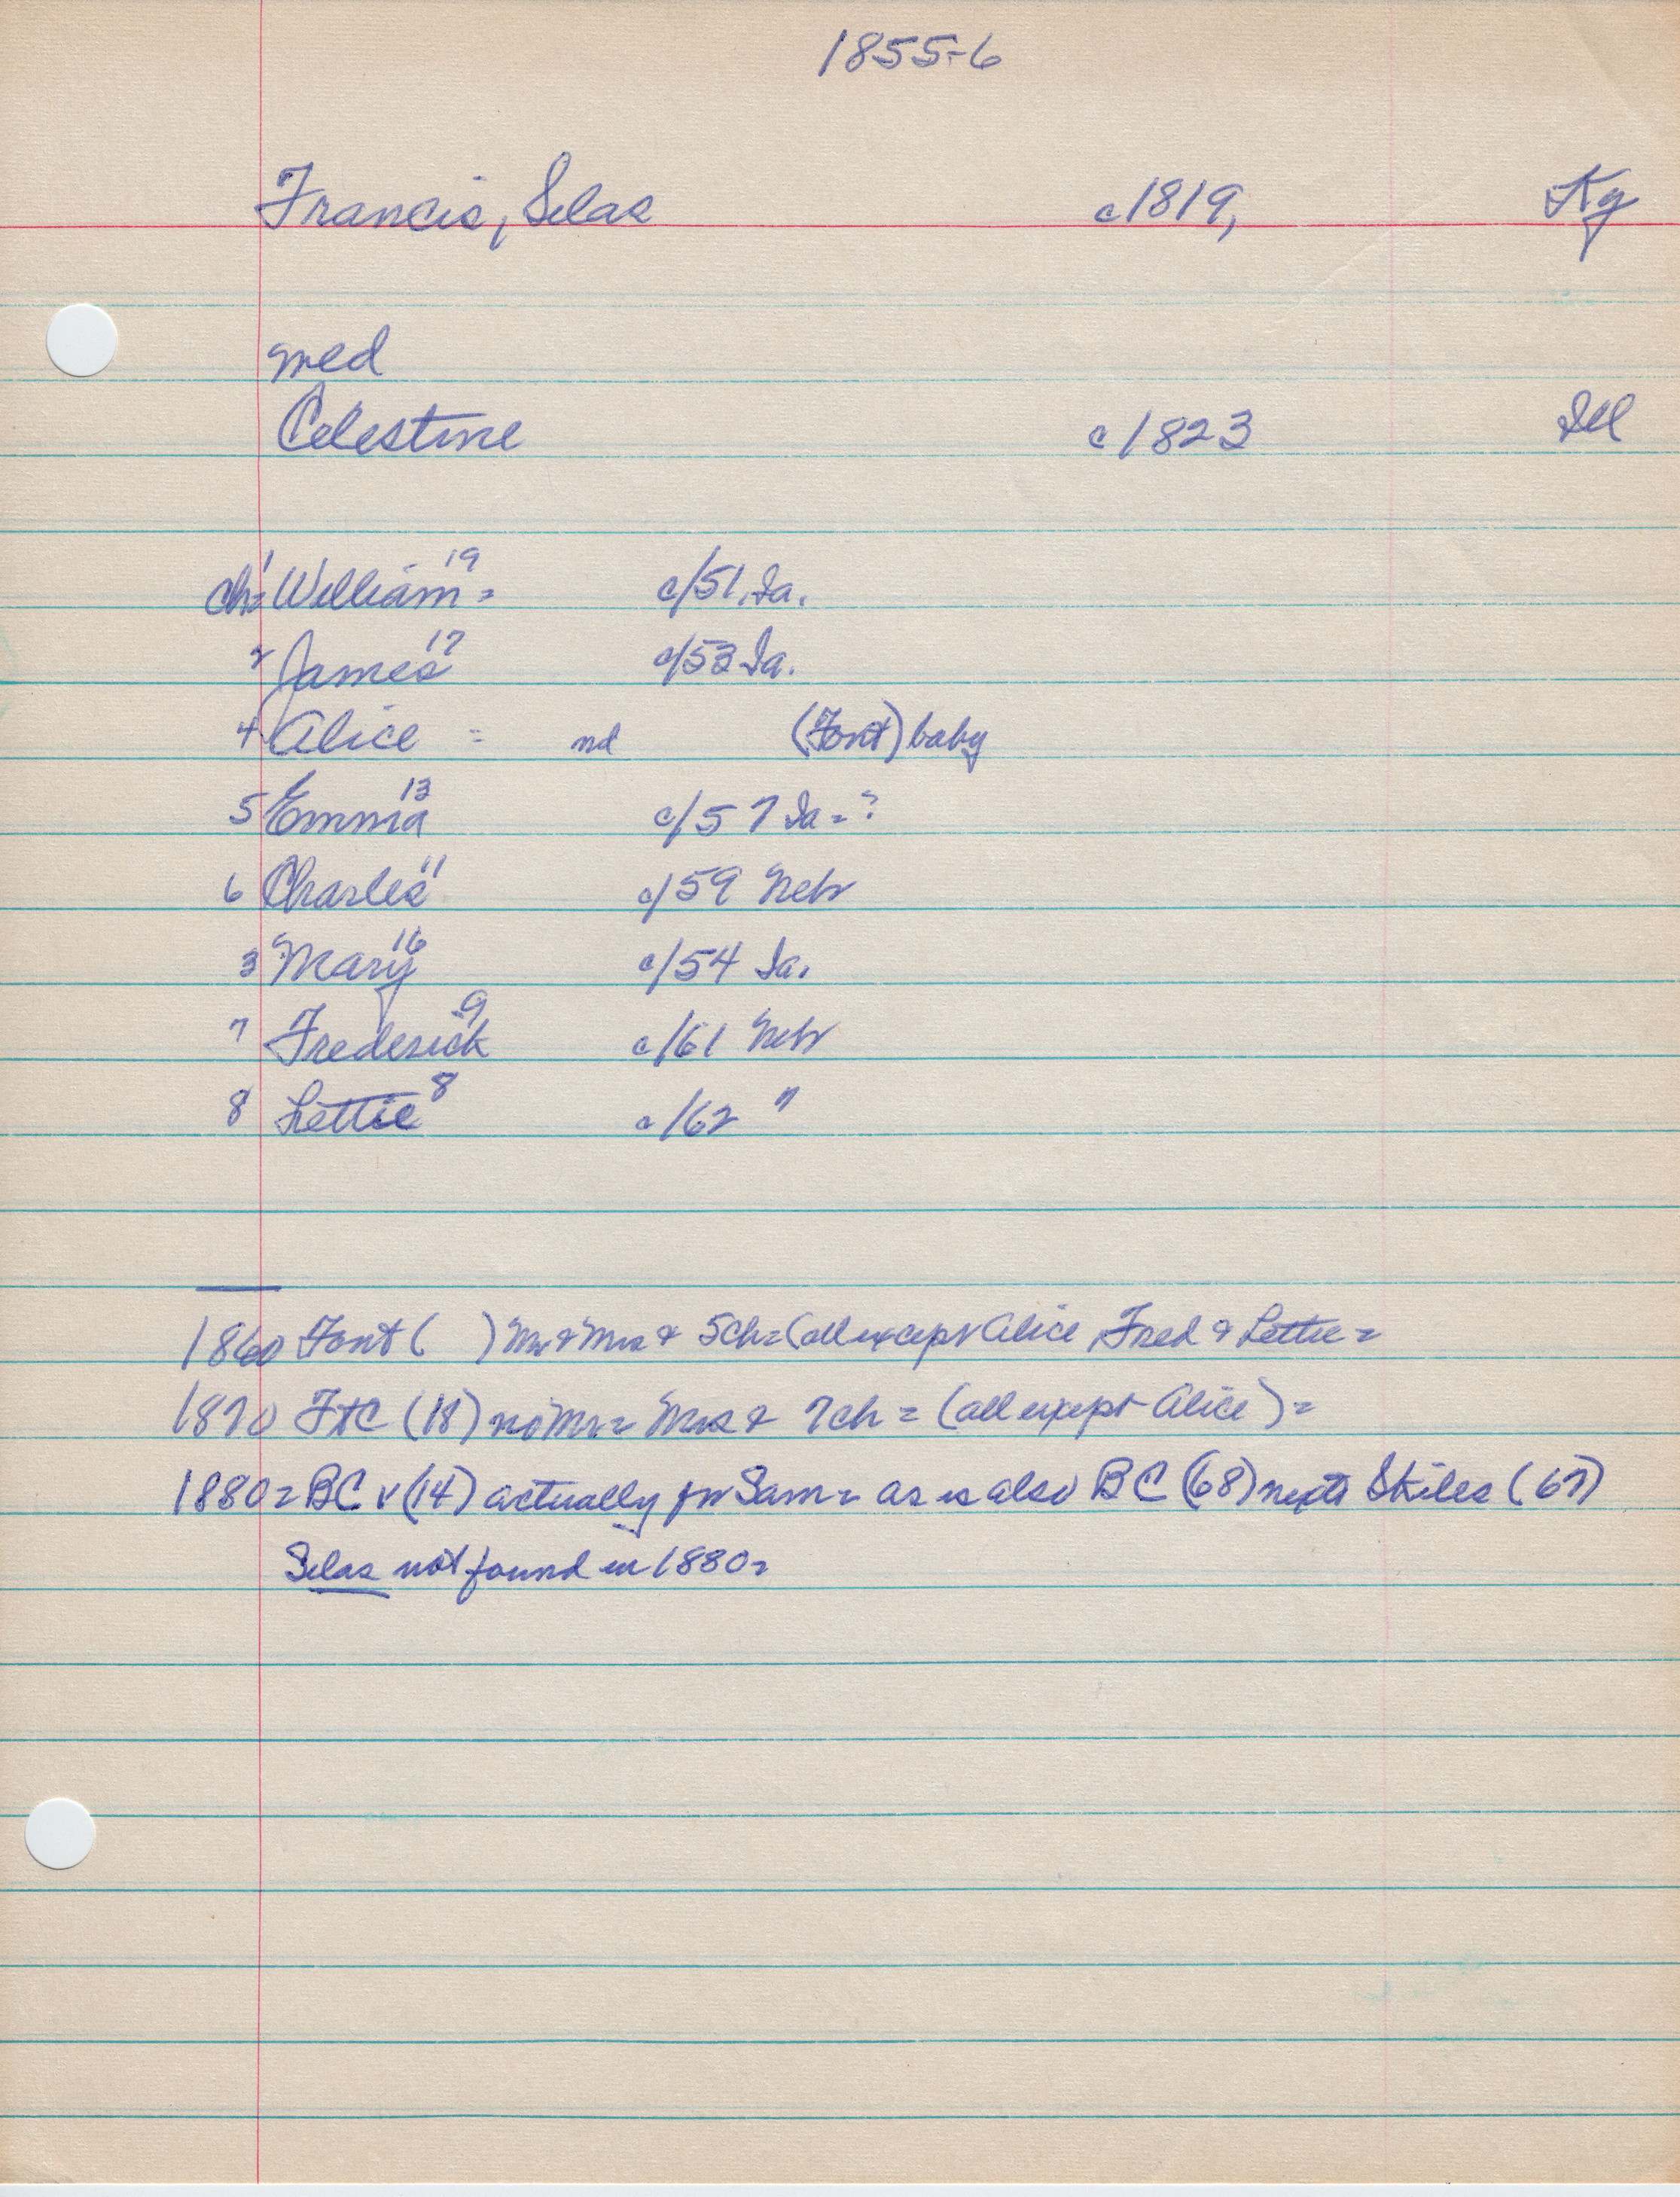 1855-6
Francis, Silas c1819, Ky
med
Celestine c1823 Ill
ch= 1 William 19 = c/51, Ia.
2 James 17 c/53 Ia.
4 Alice = nd (Font) baby
5 Emma 13 c/57 Ia=?
6 Charles 11 c/59 Nebr
3 Mary 16 c/54 Ia.
7 Frederick 9 c/61 Nebr
8 Lettie 8 c/62 "
1860 Font ( ) Mr & Mrs & 5ch= (all except Alice, Fred & Lettie=
1870 FtC (18) no Mr= Mrs & 7ch = (all except Alice) =
1880= BC v (14) actually for Sam= as is also BC (68) next to Skiles (67)
Silas not found in 1880=